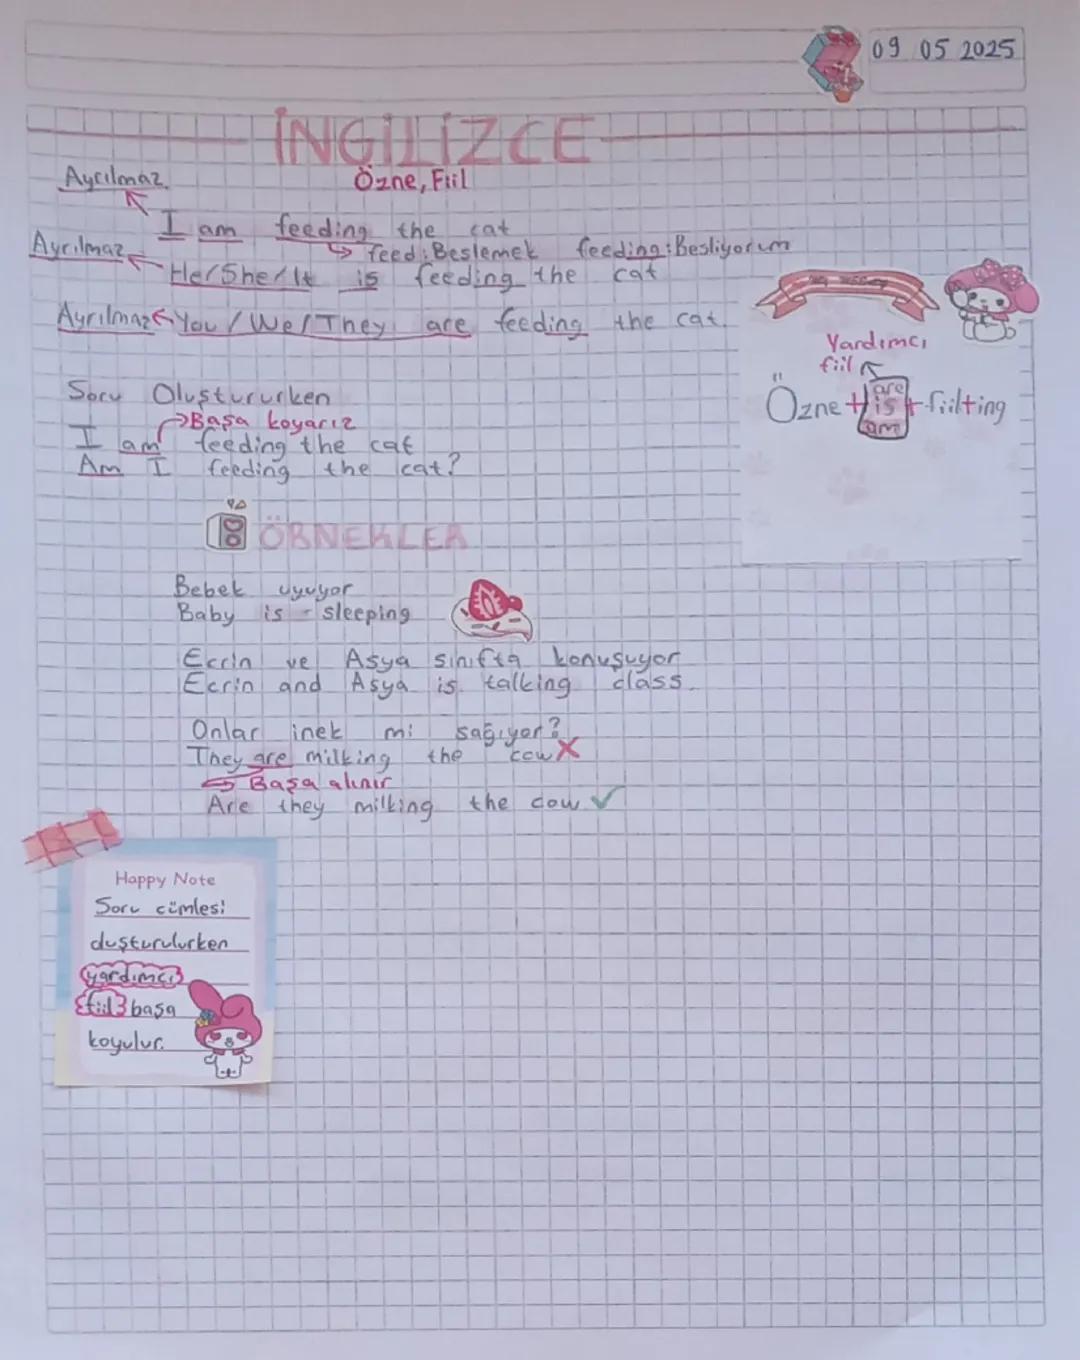 09 05 2025
İNGİLİZCE
Özne, Fiil
Ayrılmaz
I am feeding the cat
feed: Beslemek feeding: Besliyorum
Ayrılmaz
He/She/It is feeding the cat
Ayrılmaz You / We / They are feeding the cat.
Yardımcı
fiil
are
Özne + is + fiil+ing
am
Soru Oluştururken
Başa koyarız
I am feeding the cat
Am I feeding the cat?
ÖRNEKLER
Bebek uyuyor
Baby is sleeping
Ecrin ve Asya sınıfta konuşuyor
Ecrin and Asya is talking class.
Onlar inek mi sağıyor?
They are milking the cow X
Başa alınır
Are they milking the cow ✓
Happy Note
Soru cümlesi
duşturulurken
yardımcı
fiil başa
koyulur.